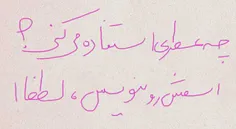 چه عطری استفاده می‌کنی؟
اسمش رو بنویس، لطفا